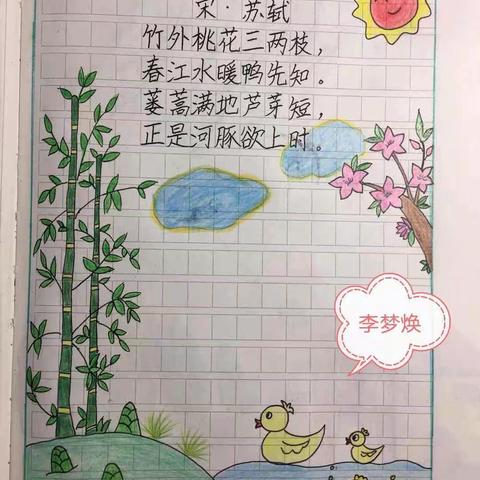 宋·苏轼
竹外桃花三两枝，
春江水暖鸭先知。
蒌蒿满地芦芽短，
正是河豚欲上时。
李梦焕